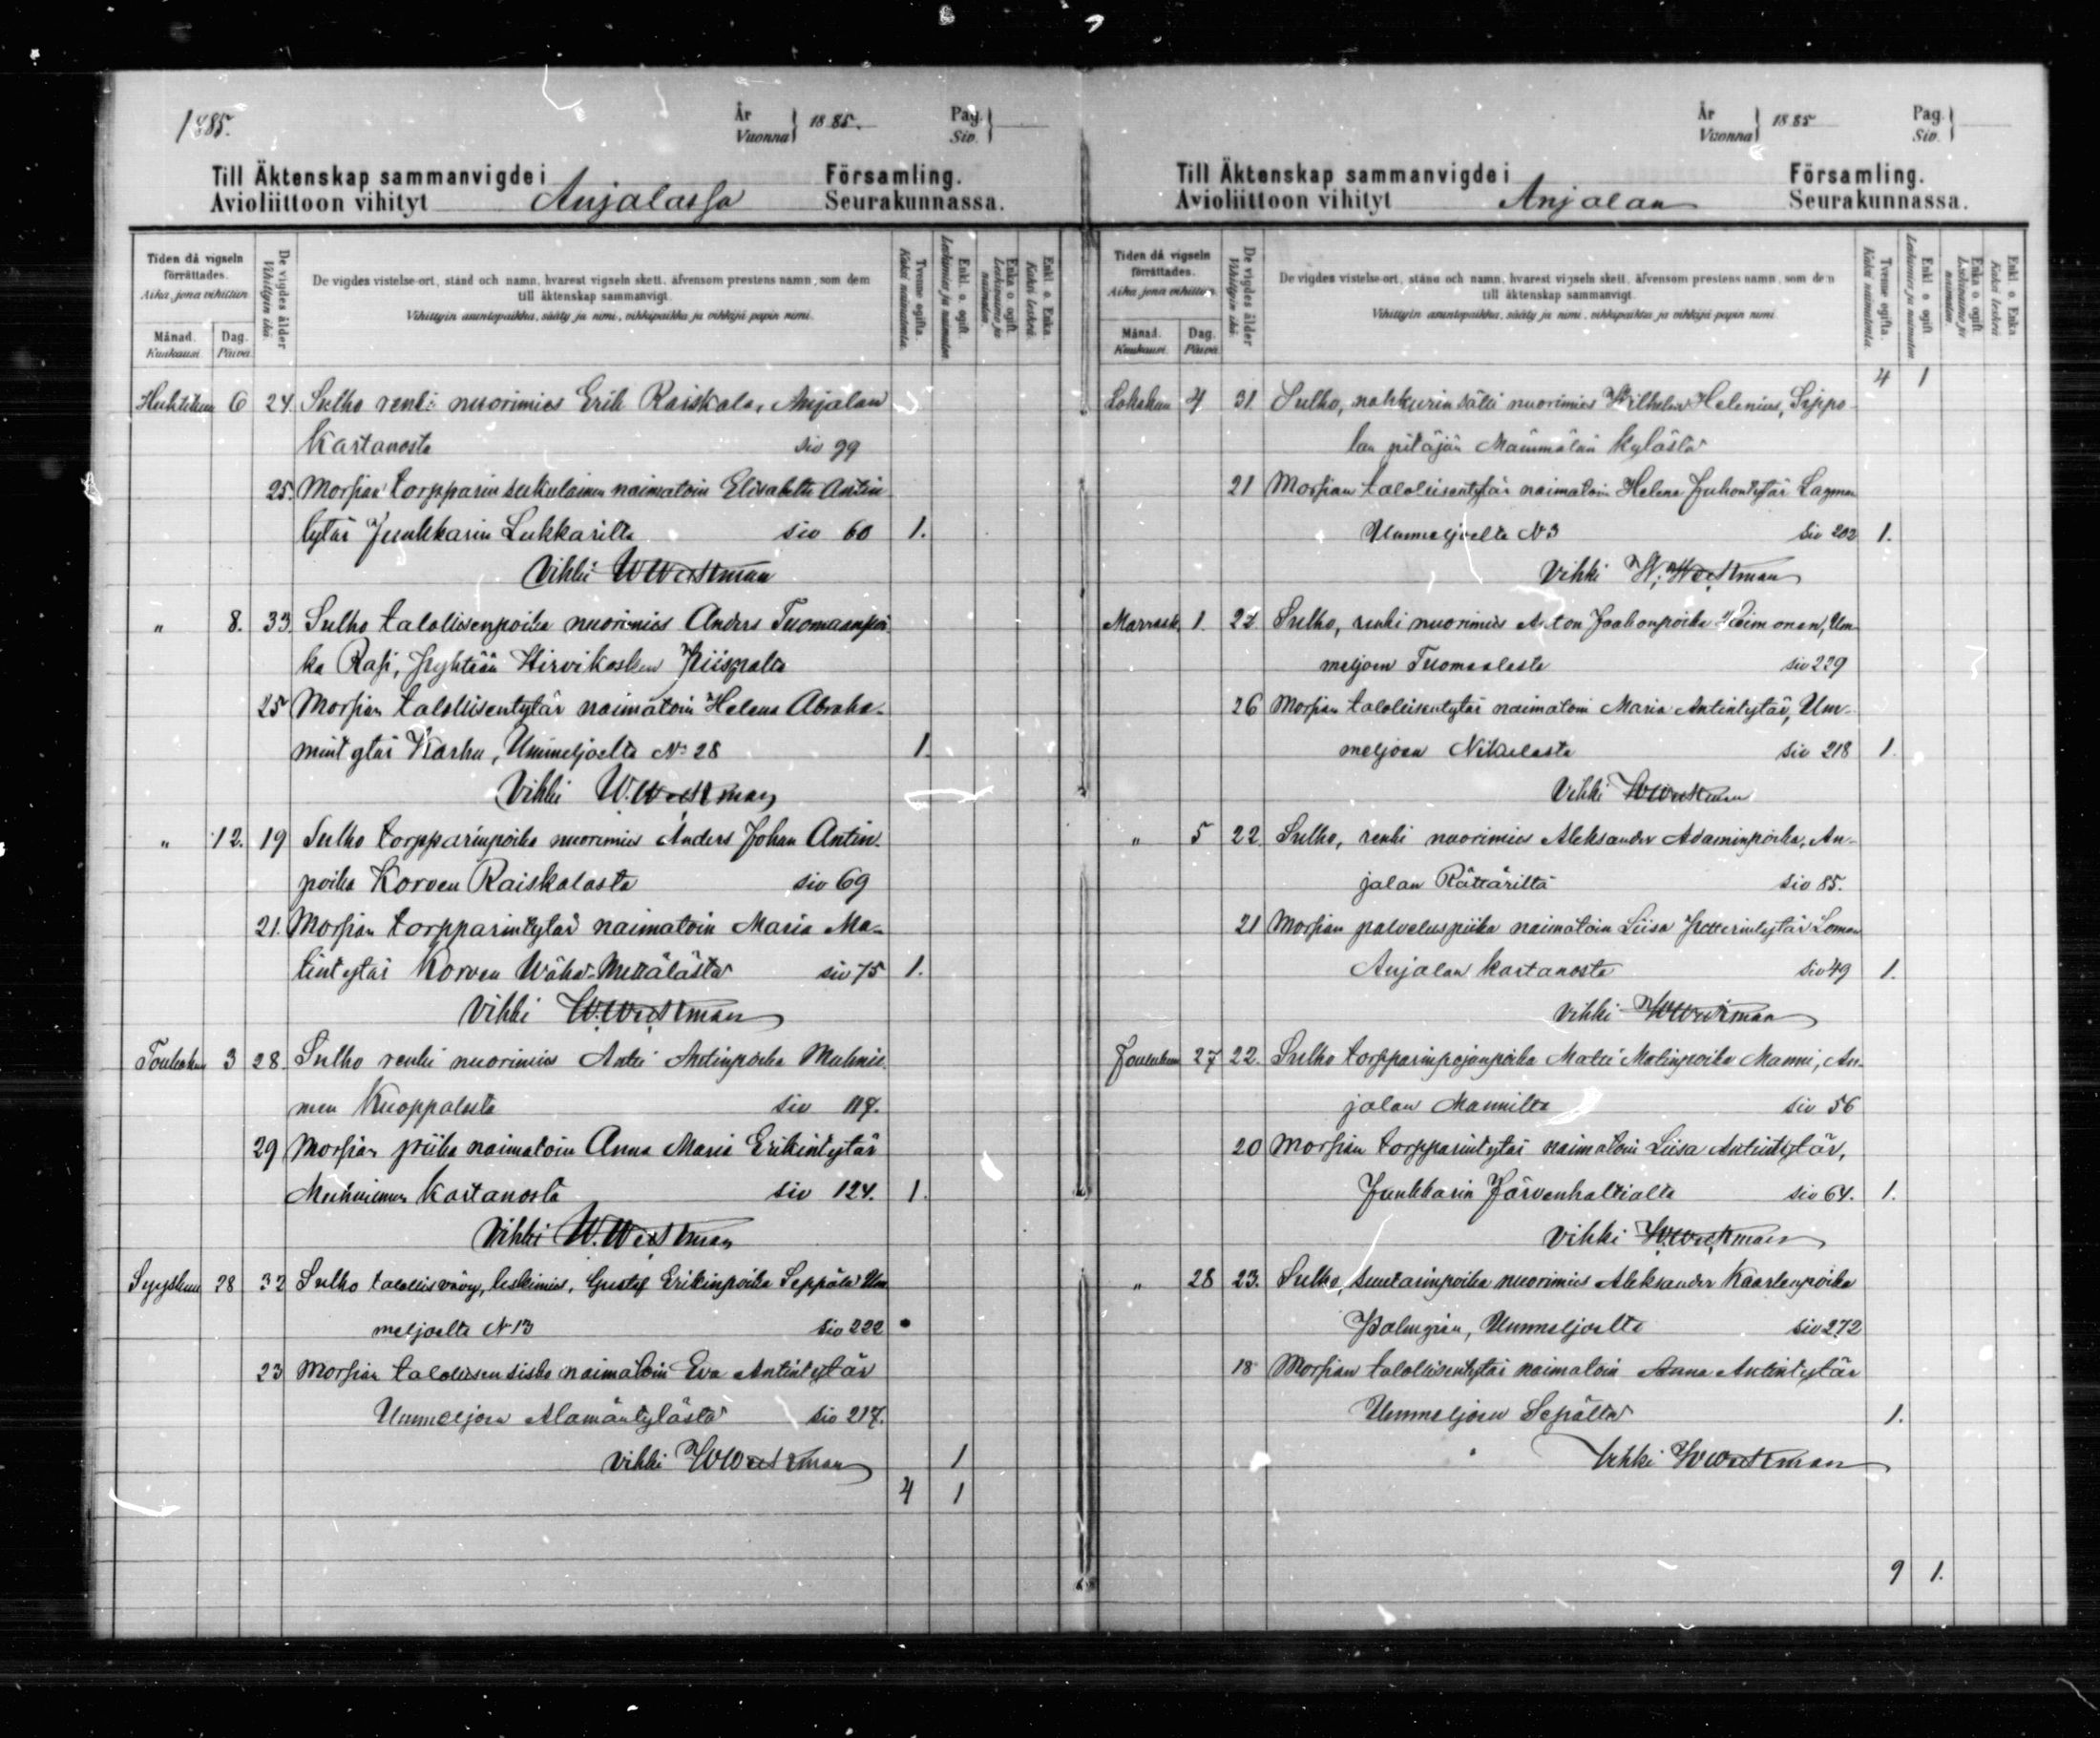 1885.
År
Vuonna } 1885.
Pag.
Siv. }
Till Äktenskap sammanvigde i Församling.
Avioliittoon vihityt Anjalassa Seurakunnassa.
Tiden då vigseln förrättades.
Aika, jona vihittiin.
Månad. Kuukausi.
Dag. Päivä.
De vigdes ålder
Vihittyin ikä.
De vigdes vistelse-ort, stånd och namn, hvarest vigseln skett, äfvensom prestens namn, som dem
till äktenskap sammanvigt.
Vihittyin asuntopaikka, sääty ja nimi, vihkipaikka ja vihkijä papin nimi.
Tvenne ogifta.
Kaksi naimatonta.
Enkl. o. ogift.
Leskimies ja naimaton
Enka o. ogift
Leskivaimo ja naimaton.
Enkl. o. Enka.
Kaksi leskeä.
Huhtikuu 6 24. Sulho renki nuorimies Erik Raiskala, Anjalan
Kartanosta siv 99
25. Morsian torpparin sukulainen naimatoin Elisabetta Antin
tytär Junkkarin Lukkarilta siv 60 1.
Vihki W Westman
" 8. 33. Sulho talollisenpoika nuorimies Anders Tuomaanpoi
ka Rasi, Pyhtään Hirvikosken Piispalta
25 Morsian talollisentytär naimatoin Helena Abraha-
mintytär Karhu, Ummeljoelta No 28 1.
Vihki W. Westman
" 12. 19 Sulho torpparinpoika nuorimies Anders Johan Antin
poika Korven Raiskalasta siv 69
21. Morsian torpparintytär naimatoin Maria Ma-
tintytär Korven Wähä-Mettälästä siv 75 1.
Vihki W. Westman
Toukokuu 3 28. Sulho renki nuorimies Antti Antinpoika Muhnie
men Kuoppalasta siv 117.
29 Morsian piika naimatoin Anna Maria Erikintytär
Muhniemen Kartanosta siv 124. 1.
Vihki W. Westman
Syyskuu 28 32 Sulho talollisvävy, leskimies, Gustaf Erikinpoika Seppälä Um
meljoelta No 13 siv 222
23 Morsian talollisen sisko naimatoin Eva Antintytär
Ummeljoen Alamäntylästä siv 217.
Vihki W Westman 1
4 1
År
Vuonna } 1885
Pag.
Siv. }
Till Äktenskap sammanvigde i Församling.
Avioliittoon vihityt Anjalan Seurakunnassa.
Tiden då vigseln förrättades.
Aika, jona vihittiin.
Månad. Kuukausi.
Dag. Päivä.
De vigdes ålder
Vihittyin ikä.
De vigdes vistelse-ort, stånd och namn, hvarest vigseln skett, äfvensom prestens namn, som dem
till äktenskap sammanvigt.
Vihittyin asuntopaikka, sääty ja nimi, vihkipaikka ja vihkijä papin nimi.
Tvenne ogifta.
Kaksi naimatonta.
Enkl. o. ogift
Leskimies ja naimaton
Enka o. ogift
Leskivaimo ja naimaton
Enkl. o. Enka
Kaksi leskeä
4 1
Lokakuu 4 31 Sulho, nahkurinsälli nuorimies Wilhelm Helenius, Sippo
lan pitäjän Mämmälän kylästä
21 Morsian talollisentytär naimatoin Helena Juhontytär Lagman
Ummeljoelta No 3 siv 202 1.
Vihki W. Westman
Marrask. 1. 27. Sulho, renki nuorimies Anton Jaakonpoika Heimonen, Um
meljoen Tuomaalasta siv 229
26 Morsian talollisentytär naimatoin Maria Antintytär, Um-
meljoen Nikulasta siv 218 1.
Vihki W Westman
" 5 22. Sulho, renki nuorimies Aleksander Adaminpoika, An-
jalan Rättäriltä siv 85.
21 Morsian palveluspiika naimatoin Liisa Petterintytär Loman
Anjalan kartanosta siv 49 1.
Vihki W Westman
Joulukuu 27 22. Sulho torpparinpojanpoika Matti Matinpoika Manni, An-
jalan Mannilta siv 56
20 Morsian torpparintytär naimatoin Liisa Antintytär,
Junkkarin Järvenhaltialta siv 64. 1.
Vihki W. Westman
" 28 23. Sulho, suutarinpoika nuorimies Aleksander Kaarlenpoika
Palmgren, Ummeljoelta siv 272
18 Morsian talollisentytär naimatoin Anna Antintytär
Ummeljoen Sepältä 1.
Vihki W Westman
9 1.